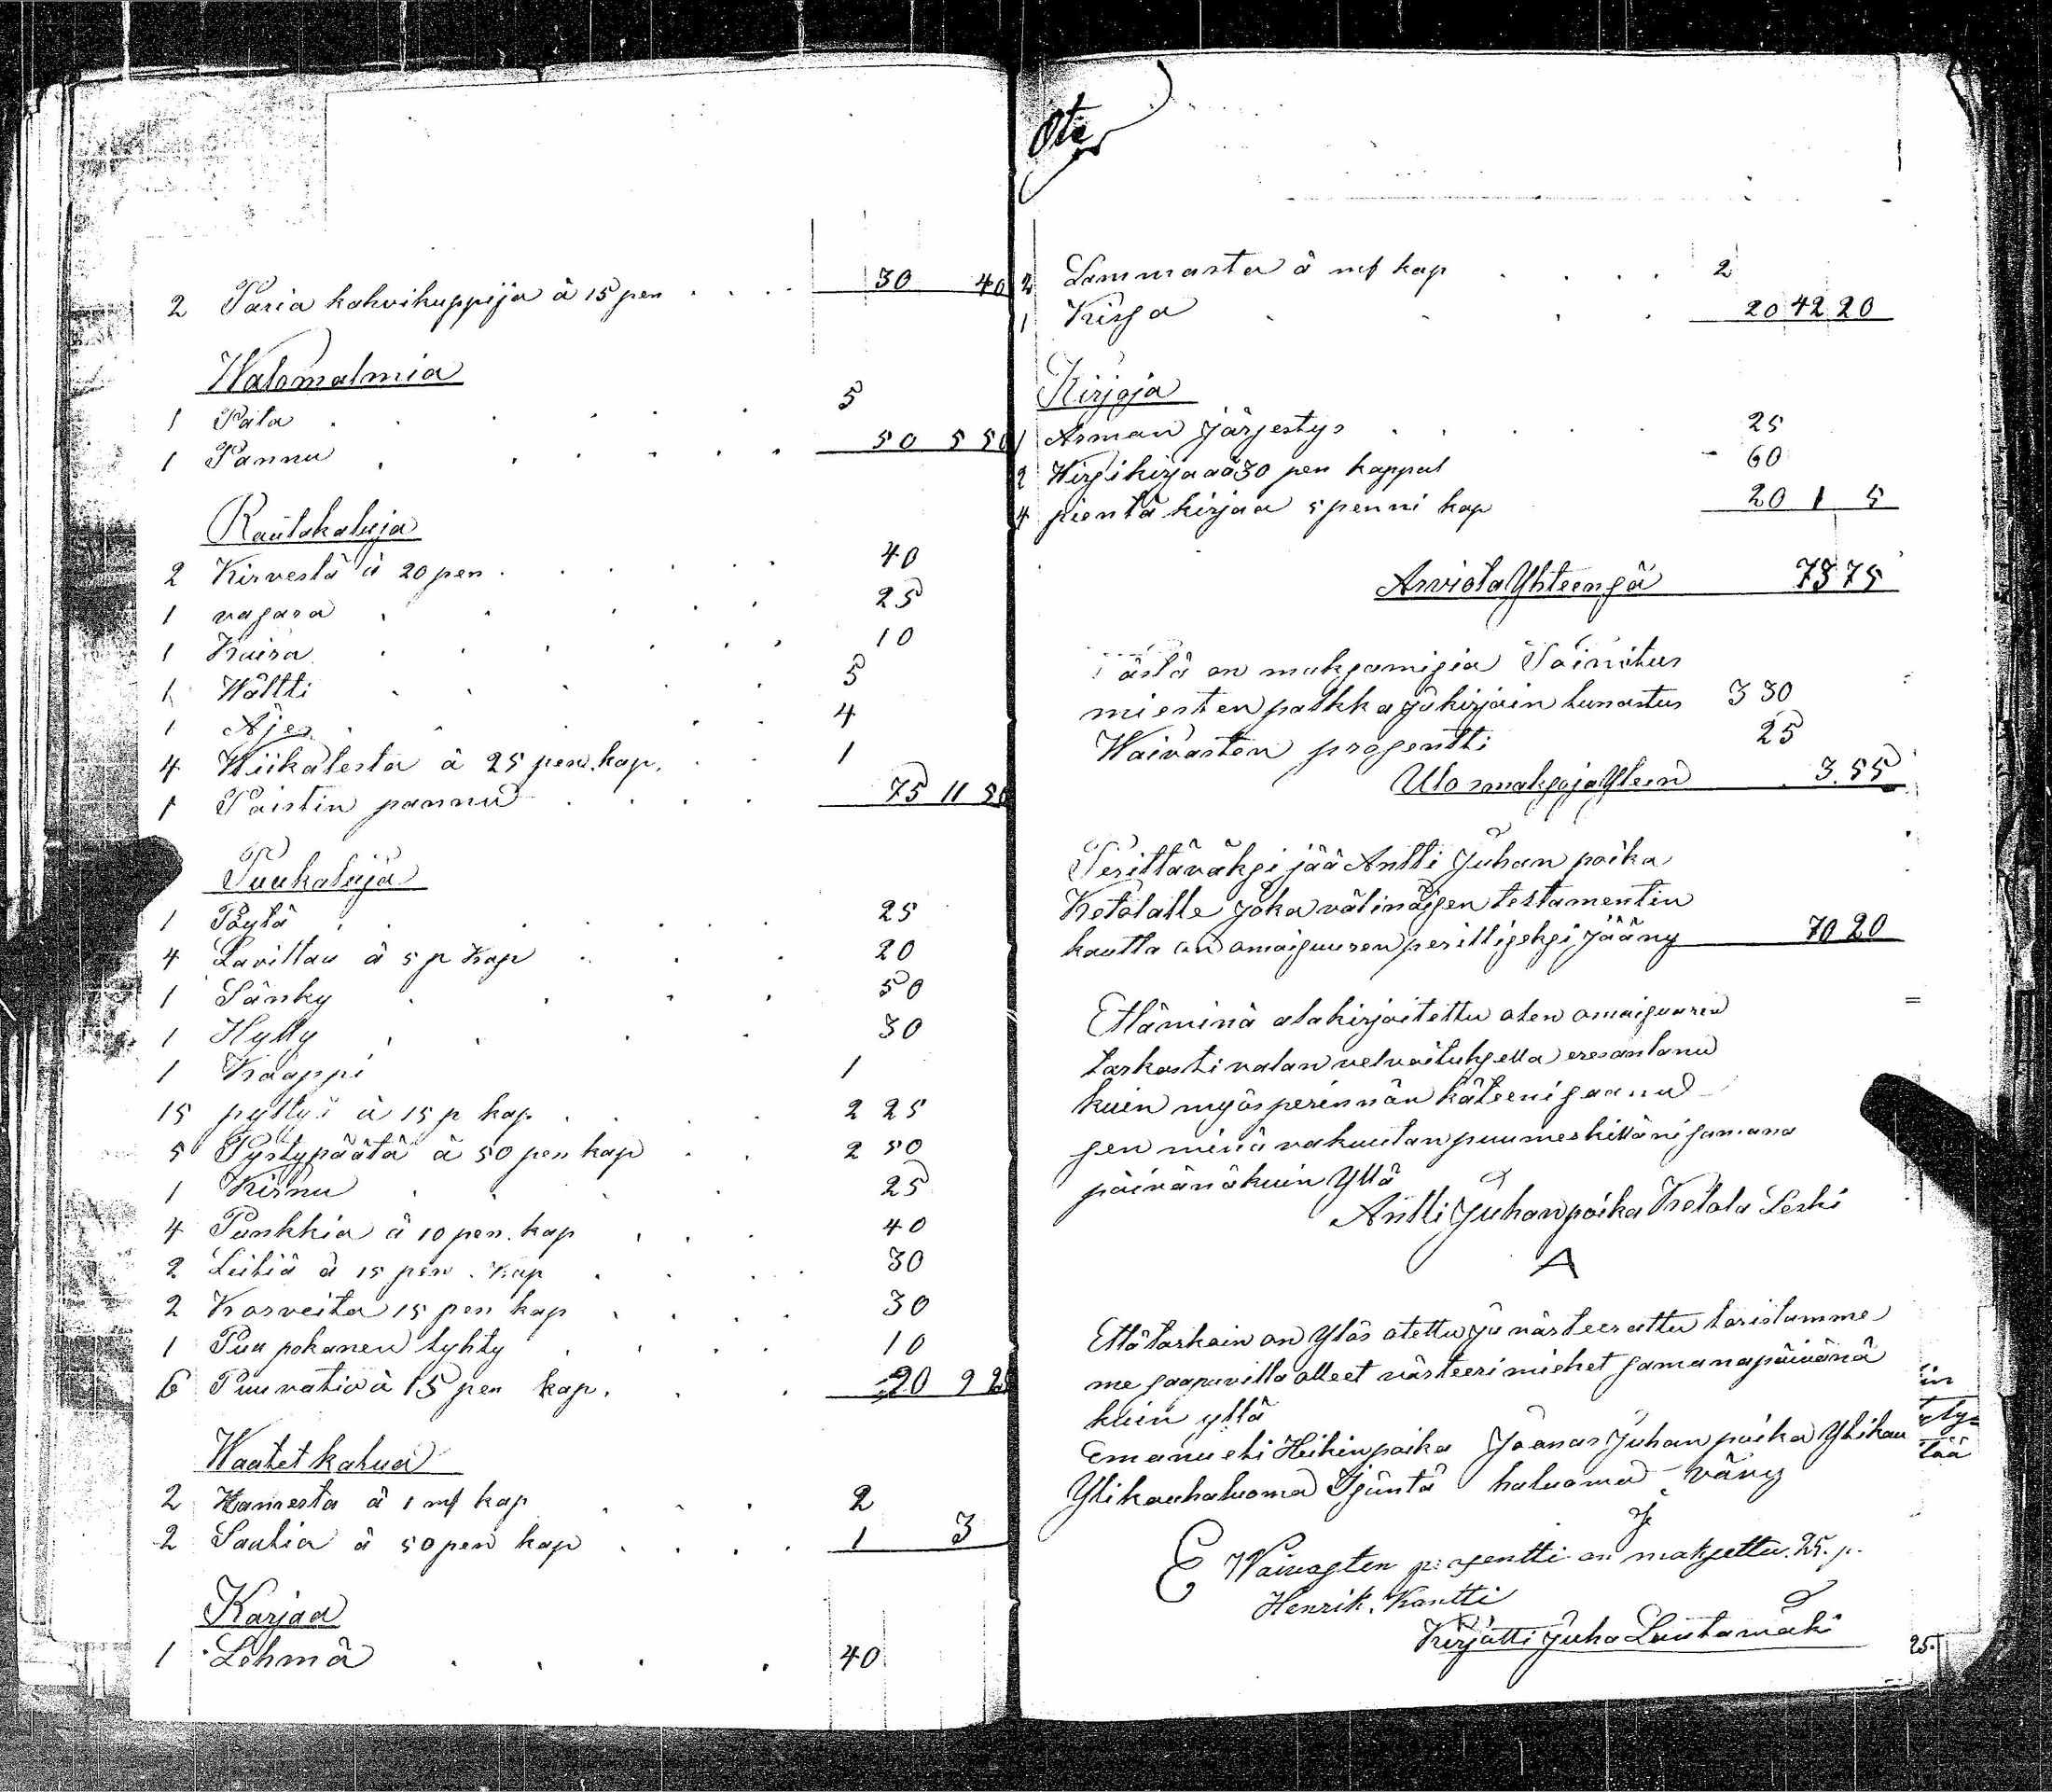 2 Paria kahvikuppija à 15 pen . . . . 30 40
Walomalmia
1 Pata . . . . . . 5
1 Pannu . . . . . . 50 5 50
Rautakaluja
2 Kirvestä à 20 pen . . . . . 40
1 vasara . . . . . 25
1 Kaira . . . . . . 10
1 Wältti . . . . . 5
1 Äjes . . . . . 4
4 Wiikatesta à 25 pen. kap. . . 1
1 Paistin pannu . . . . 75 11 50
Puukaluja
1 Pöytä . . . . . . 25
4 Lavittaa à 5 p kap . . . 20
1 Sänky . . . . 50
1 Hylly . . . . 30
1 Kaappi 1
15 pyttyä à 15 p kap . . . 2 25
5 Pystypäätä à 50 pen kap . . 2 50
1 Kirnu . . . . 25
4 Punkkia à 10 pen. kap . . . 40
2 Leiliä à 15 pen. kap . . . . 30
2 Korveita 15 pen kap . . . . 30
1 Puu pokanen lyhty . . . . 10
6 Puuvatia à 15 pen kap. . . 90 9 25
Waatetkalua
2 Hamesta à 1 mf kap . . . 2
2 Saulia à 50 pen kap . . . . 1 3
Karjaa
1 Lehmä . . . . 40
2 Lammasta à mf kap . . . . 2
1 Kissa . . . . 20 42 20
Kirjoja
1 Asman järjestys . . . . . 25
2 Wirsikirjaa à 30 pen kappal - 60
4 pientä kirjaa 5 penni kap 20 1 5
Arviota Yhteensä 73 75
Tästä on maksamisia Toimitus
miesten palkka ja kirjain lunastus 3 30
Waivasten prosentti 25
Ulosmaksoja Yteen 3.55
Perittäväksi jää Antti Juhan poika
Ketolalle joka välinäisen testamentin
kautta on omaisuuren perilliseksi jääny 70 20
Että minä alakirjoitettu olen omaisuuren
tarkasti valan velvoituksella eresantanu
kuin myös perinnän käteeni saanu
sen minä vakuutan puumerkilläni samana
päivänäkuin Yllä
Antti Juhanpoika Ketola Leski
A
Että tarkain on Ylös otettu ja värteerattu toristamme
me saapuvilla olleet värteerimiehet samanapäivänä
kuin yllä
Emanueli Heikinpoika Joonas Juhan poika Ylikau
Ylikauhaluoma Isäntä haluoma väny
E Waivasten prosentti on maksettu. 25. p.
Henrik. Kantti
Kirjatti Juha Luutamäki
25.